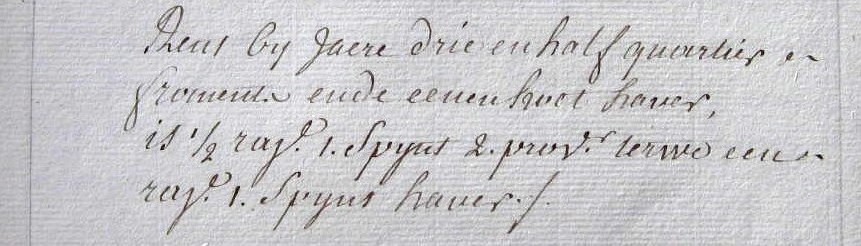 Rent by Jaere drie en half quartier
froment ende eenen hoot haver,
is 1/2 raz.e 1. Spynt 2. prov.rs terwe een
raz.e 1. Spynt haver./.